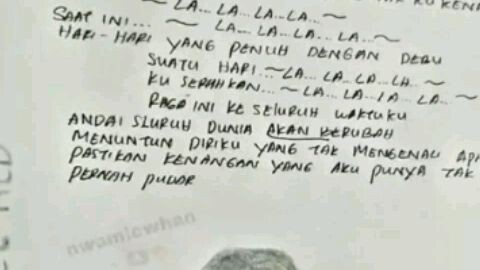 ~ LA... LA... LA...LA... ~
SAAT INI... ~ LA... LA... LA... LA... ~
HARI-HARI YANG PENUH DENGAN DEBU
SUATU HARI...~LA... LA... LA...LA... ~
KU SERAHKAN... ~ LA... LA... LA... LA... ~
RAGA INI KE SELURUH WAKTUKU
ANDAI SLURUH DUNIA AKAN BERUBAH
MENUNTUN DIRIKU YANG TAK MENGENALI
PASTIKAN KENANGAN YANG AKU PUNYA TAK
PERNAH PUDAR
nwamicwhan